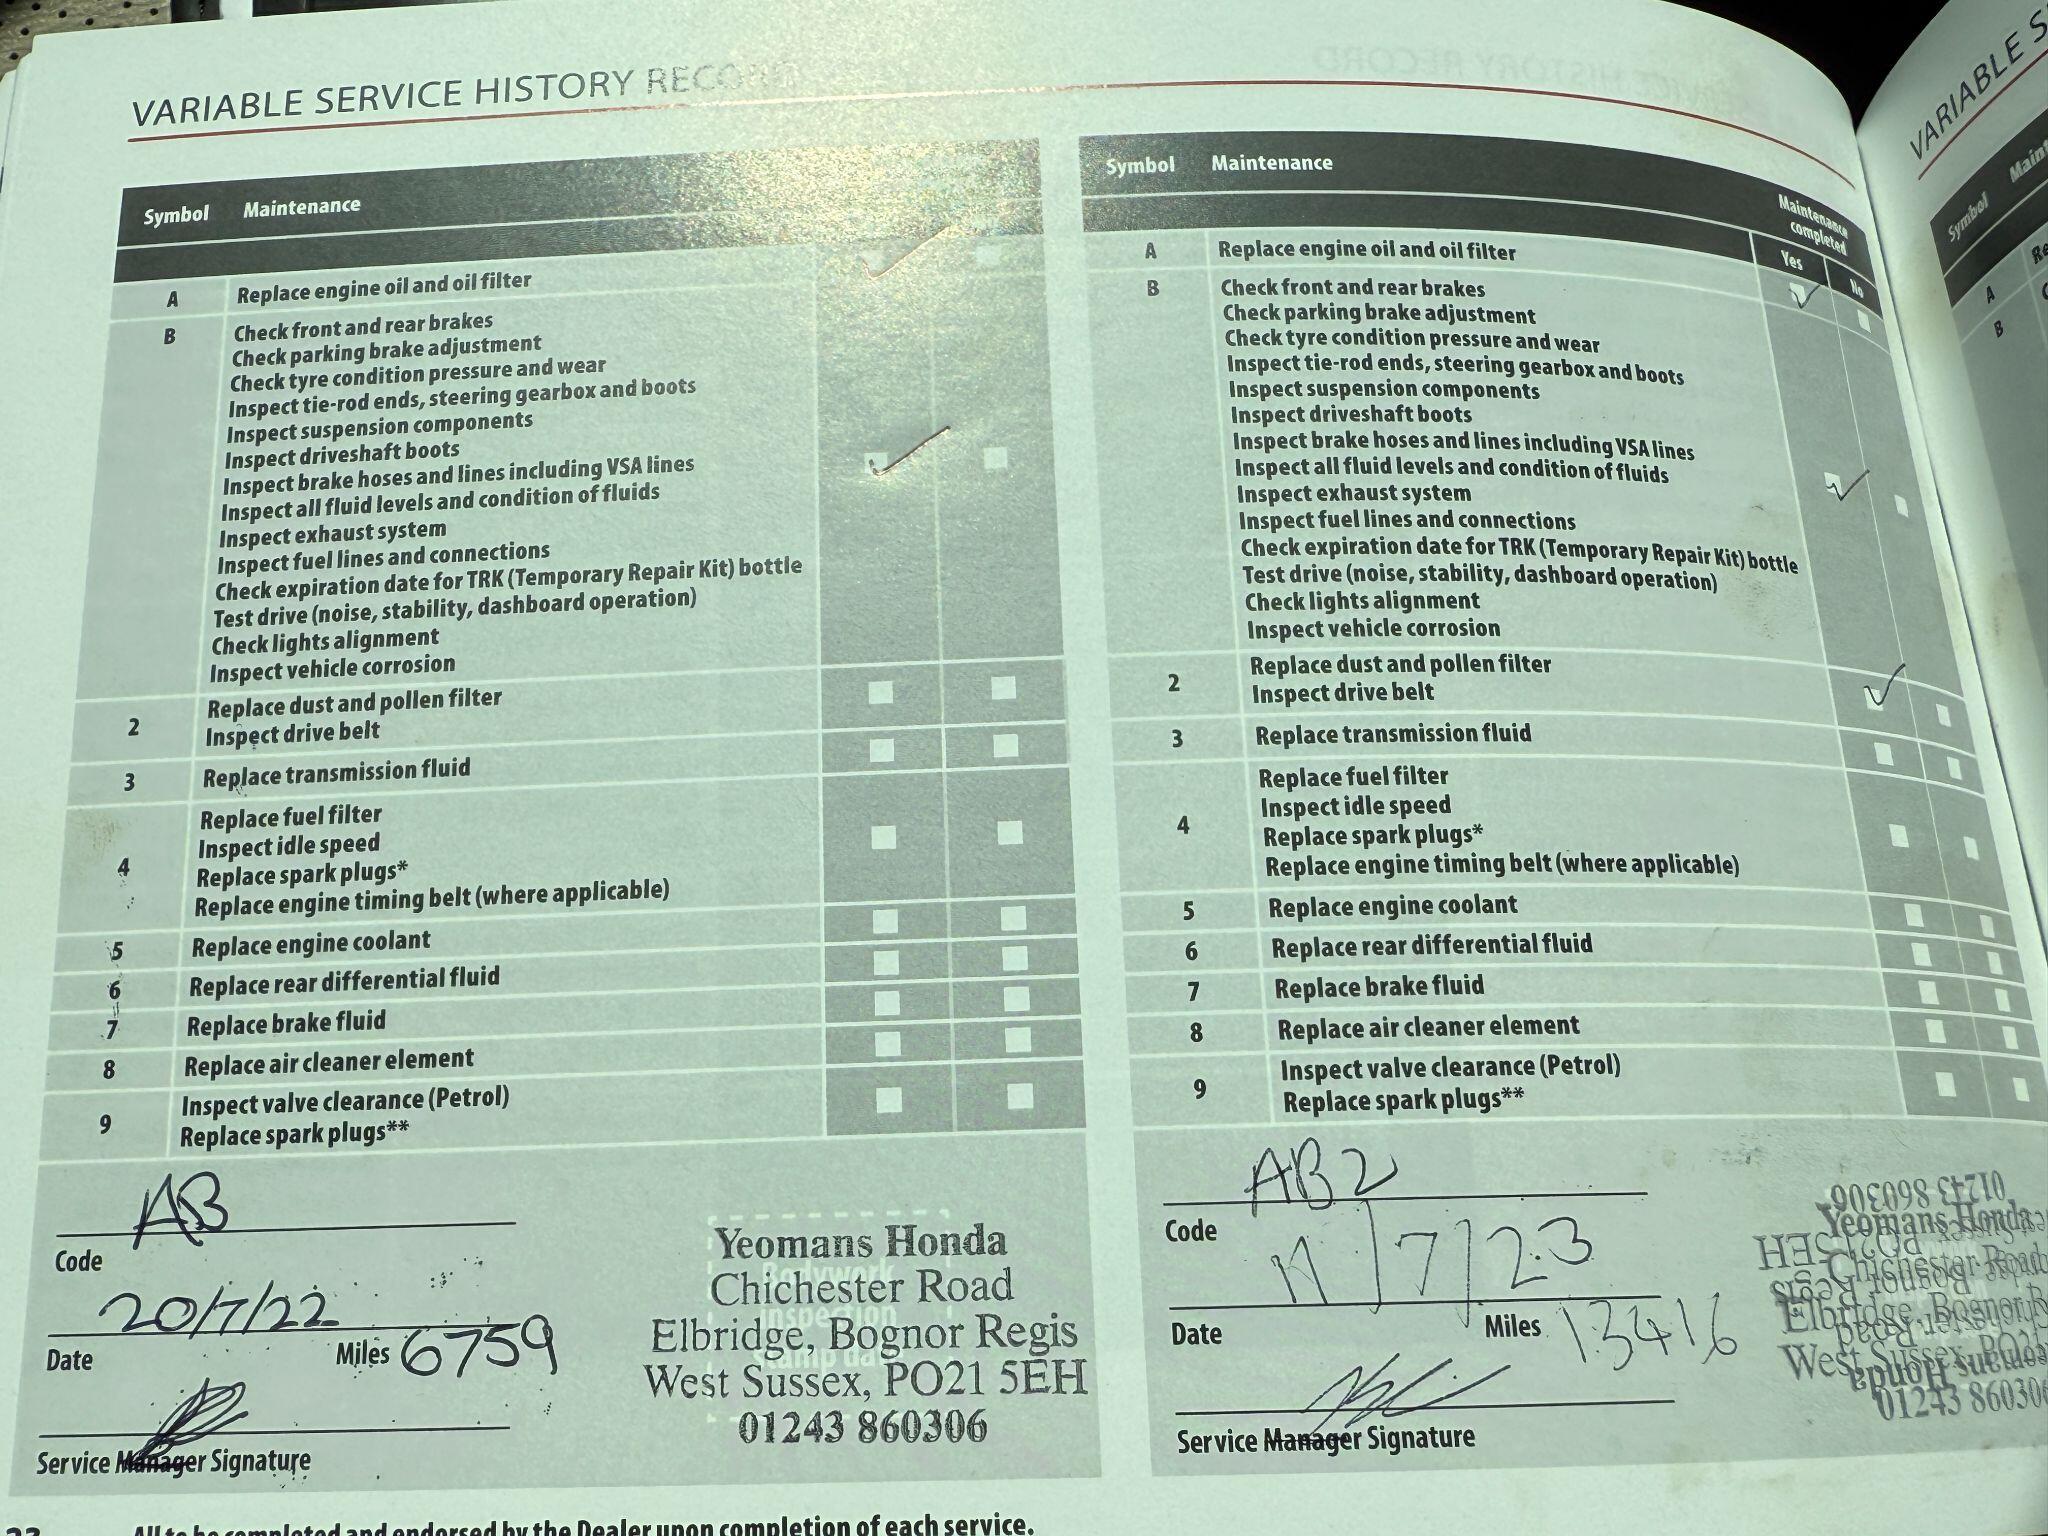 VARIABLE SERVICE HISTORY RECORD
Symbol Maintenance
A Replace engine oil and oil filter
B Check front and rear brakes
Check parking brake adjustment
Check tyre condition pressure and wear
Inspect tie-rod ends, steering gearbox and boots
Inspect suspension components
Inspect driveshaft boots
Inspect brake hoses and lines including VSA lines
Inspect all fluid levels and condition of fluids
Inspect exhaust system
Inspect fuel lines and connections
Check expiration date for TRK (Temporary Repair Kit) bottle
Test drive (noise, stability, dashboard operation)
Check lights alignment
Inspect vehicle corrosion
2 Replace dust and pollen filter
Inspect drive belt
3 Replace transmission fluid
4 Replace fuel filter
Inspect idle speed
Replace spark plugs*
Replace engine timing belt (where applicable)
5 Replace engine coolant
6 Replace rear differential fluid
7 Replace brake fluid
8 Replace air cleaner element
9 Inspect valve clearance (Petrol)
Replace spark plugs**
AB
Code
20/7/22
Date Miles 6759
Service Manager Signature
Bodywork
inspection
stamp
Yeomans Honda
Chichester Road
Elbridge, Bognor Regis
West Sussex, PO21 5EH
01243 860306
All to be completed and endorsed by the Dealer upon completion of each service.
Symbol Maintenance
Maintenance
completed
Yes No
A Replace engine oil and oil filter
B Check front and rear brakes
Check parking brake adjustment
Check tyre condition pressure and wear
Inspect tie-rod ends, steering gearbox and boots
Inspect suspension components
Inspect driveshaft boots
Inspect brake hoses and lines including VSA lines
Inspect all fluid levels and condition of fluids
Inspect exhaust system
Inspect fuel lines and connections
Check expiration date for TRK (Temporary Repair Kit) bottle
Test drive (noise, stability, dashboard operation)
Check lights alignment
Inspect vehicle corrosion
2 Replace dust and pollen filter
Inspect drive belt
3 Replace transmission fluid
4 Replace fuel filter
Inspect idle speed
Replace spark plugs*
Replace engine timing belt (where applicable)
5 Replace engine coolant
6 Replace rear differential fluid
7 Replace brake fluid
8 Replace air cleaner element
9 Inspect valve clearance (Petrol)
Replace spark plugs**
AB2
Code
11/7/23
Date Miles 13416
Service Manager Signature
01243 860306
Yeomans Honda
Chichester Road
Elbridge, Bognor
West Sussex, PO21
01243 86030
VARIABLE
Symbol
A
B